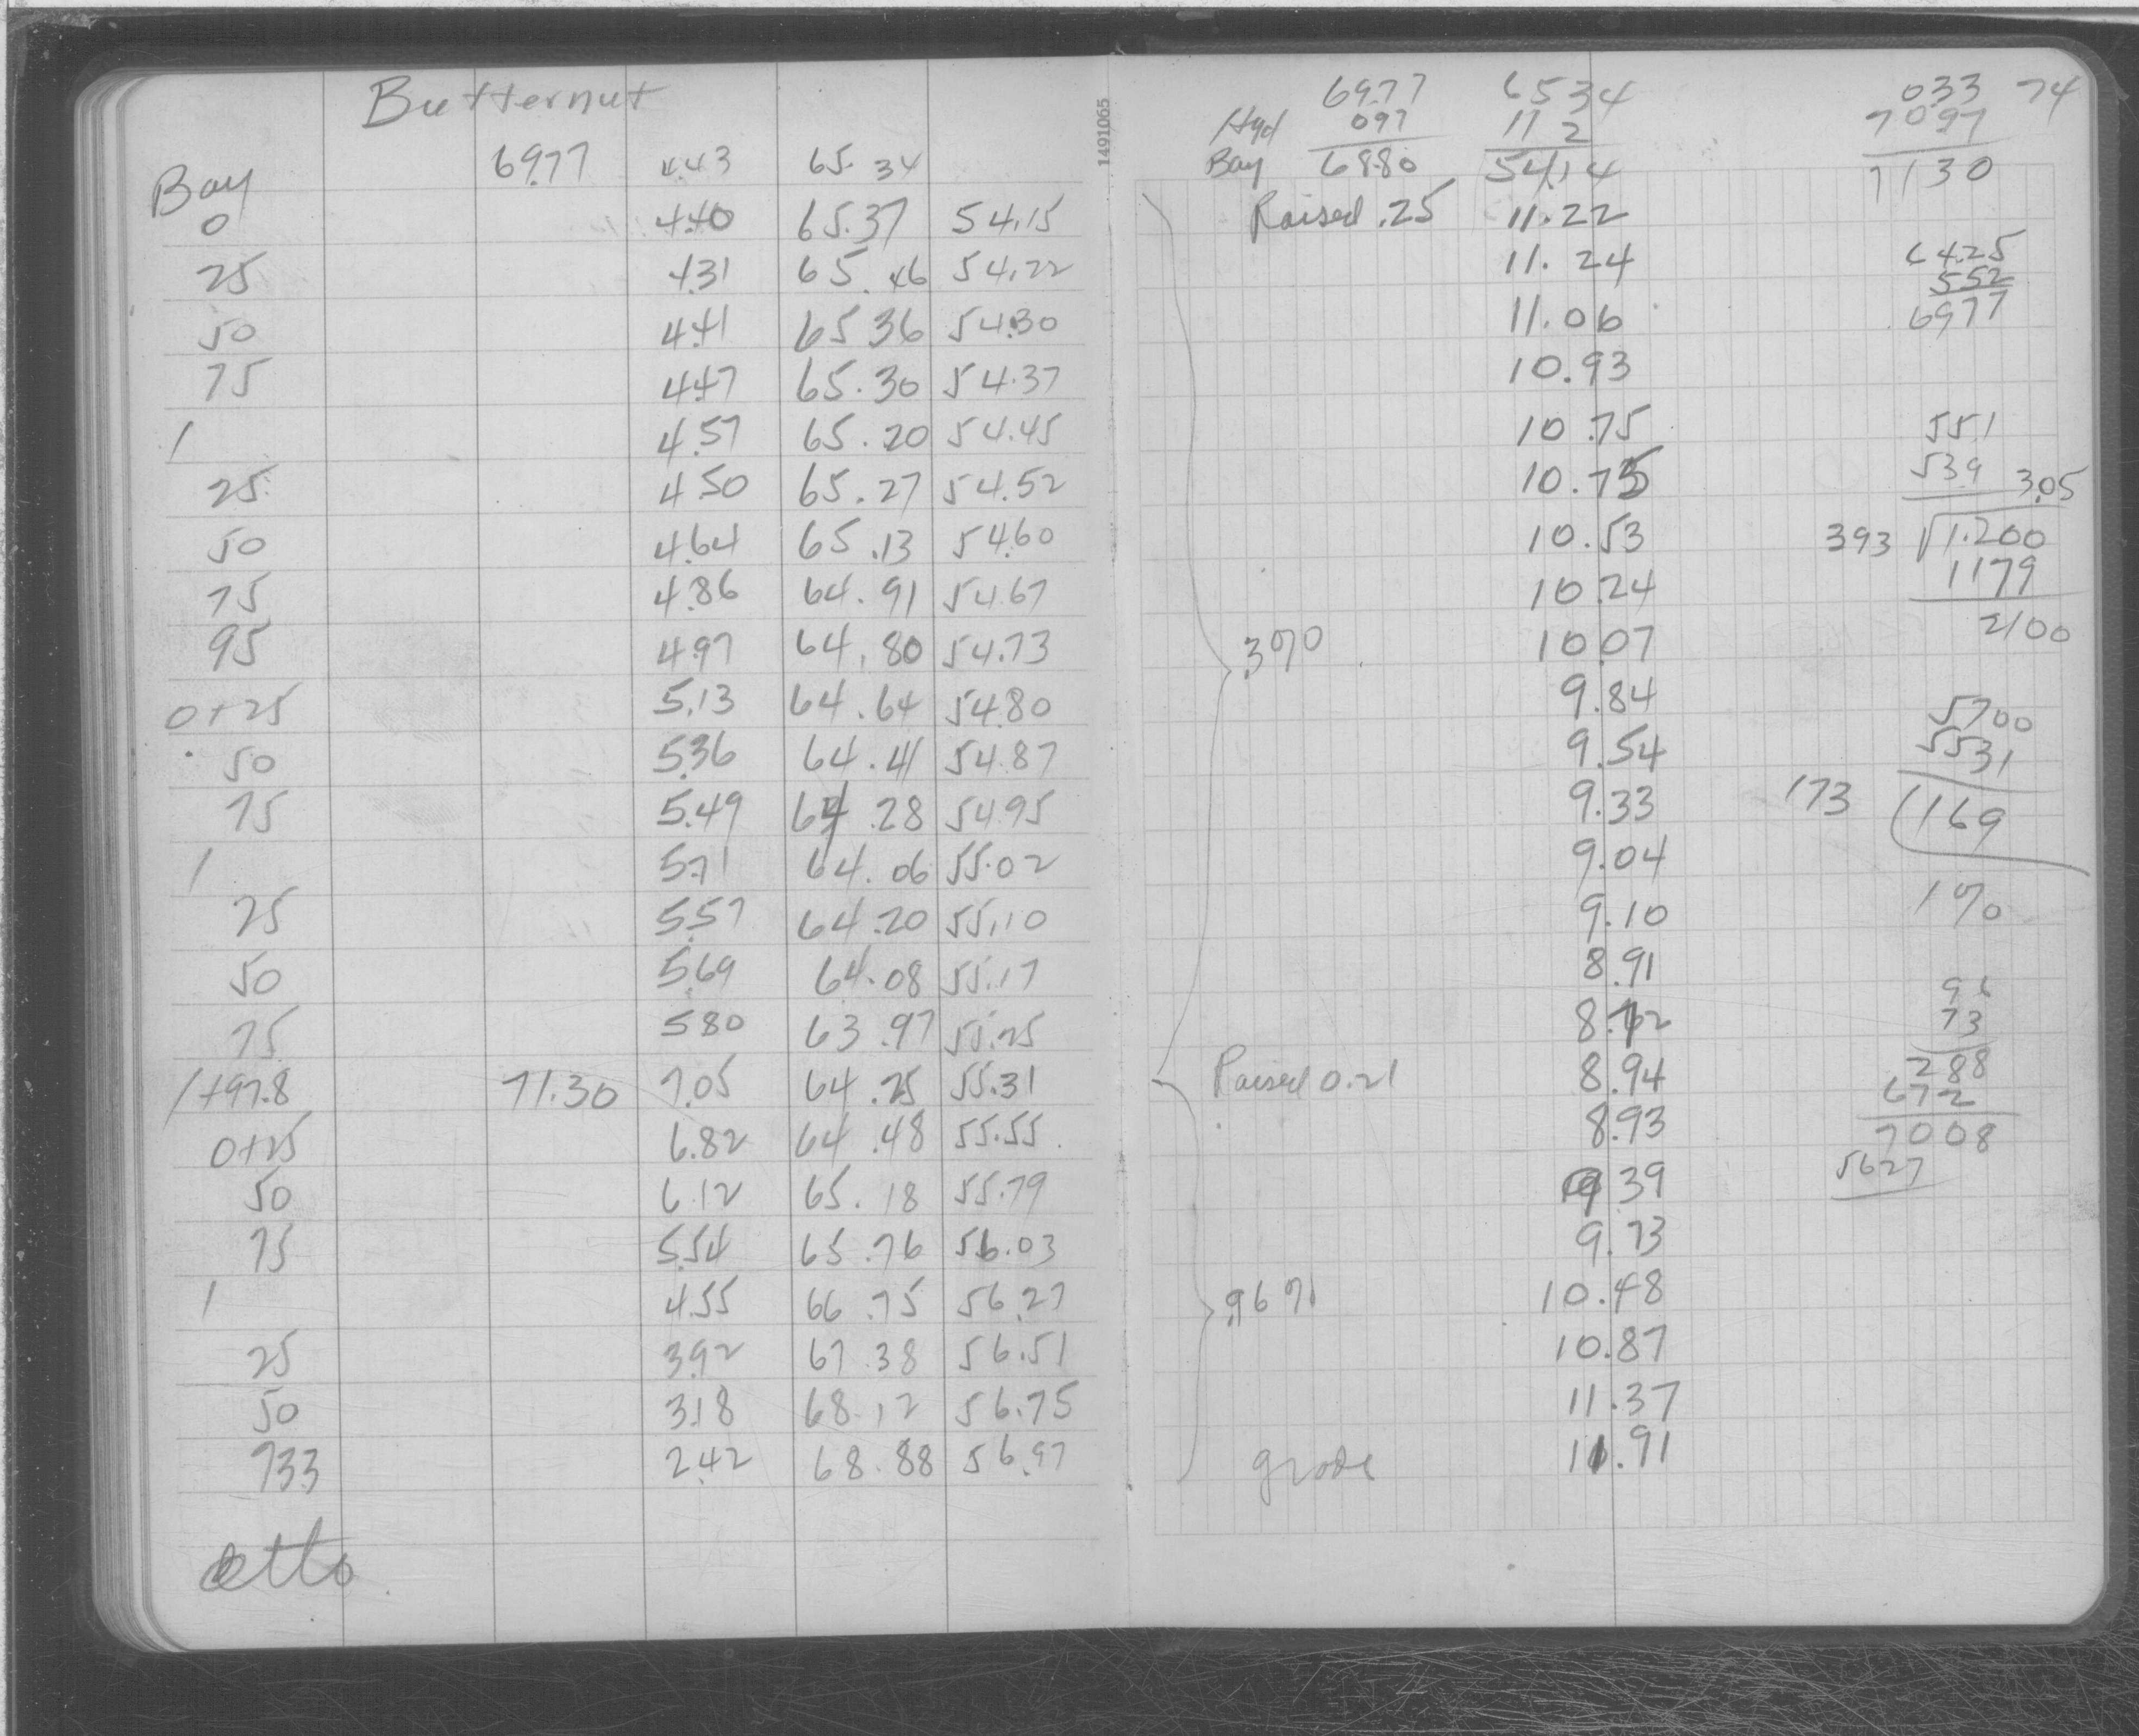 Butternut
69.77 4.43 65.34
Bay
0 4.40 65.37 54.15
25 4.31 65.46 54.22
50 4.41 65 36 54.30
75 4.47 65.30 54.37
1 4.57 65.20 54.45
25 4.50 65.27 54.52
50 4.64 65.13 54.60
75 4.86 64.91 54.67
95 4.97 64.80 54.73
0+25 5.13 64.64 54.80
50 5.36 64.41 54.87
75 5.49 64.28 54.95
1 5.71 64.06 55.02
25 5.57 64.20 55.10
50 5.69 64.08 55.17
75 5.80 63.97 55.25
1+97.8 71.30 7.05 64.25 55.31
0+25 6.82 64.48 55.55
50 6.12 65.18 55.79
75 5.54 65.76 56.03
1 4.55 66.75 56.27
25 3.92 67.38 56.51
50 3.18 68.12 56.75
733 2.42 68.88 56.97
otto
1491065
6977 6534 033 74
Hyd 097 11 2 7097
Bay 68.80 54.14 7130
Raised .25 11.22
11.24 6425
552
11.06 6977
10.93
10.75 551
10.75 539 3.05
10.53 393 1.200
10.24 1179
.3% 10.07 2100
9.84 5700
9.54 5531
9.33 173 169
9.04
9.10 1%
8.91 96
8.72 73
Raised 0.21 8.94 288
672
8.93 7008
9.39 5627
9.73
.96% 10.48
10.87
11.37
grade 11.91